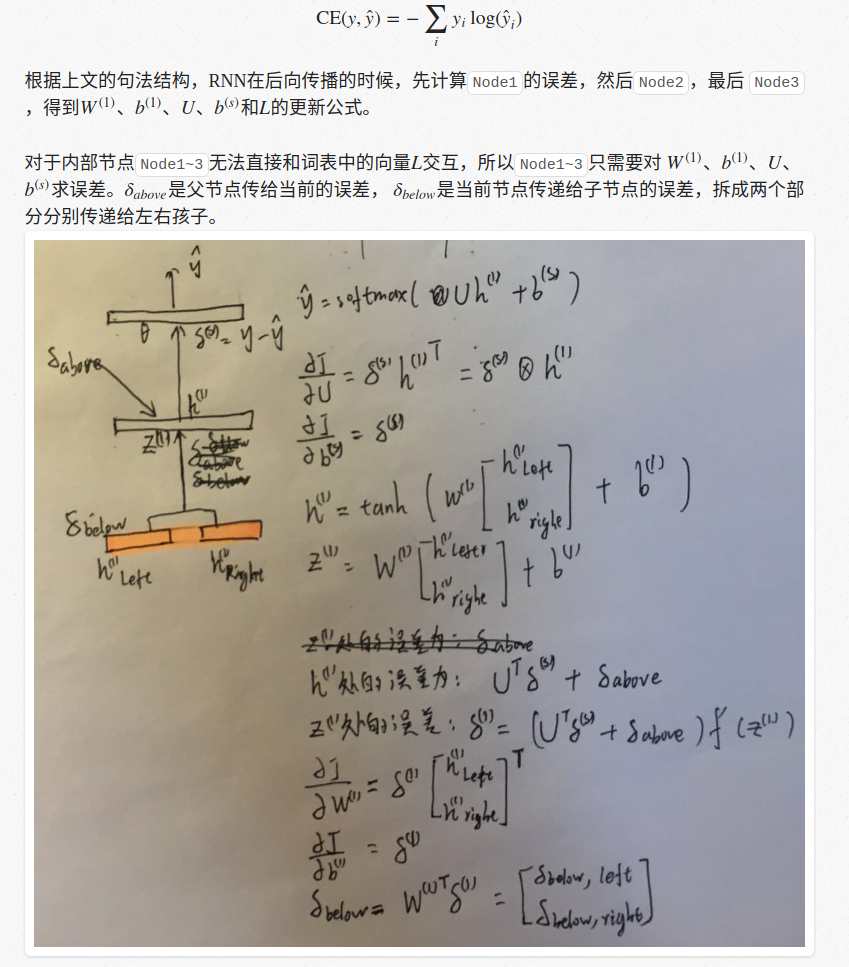 CE(y, ŷ) = − ∑ᵢ yᵢ log(ŷᵢ)
根据上文的句法结构，RNN在后向传播的时候，先计算 Node1 的误差，然后 Node2 ，最后 Node3
，得到W⁽¹⁾、b⁽¹⁾、U、b⁽ˢ⁾和L的更新公式。
对于内部节点 Node1~3 无法直接和词表中的向量L交互，所以 Node1~3 只需要对 W⁽¹⁾、b⁽¹⁾、U、
b⁽ˢ⁾求误差。δ_above是父节点传给当前的误差， δ_below是当前节点传递给子节点的误差，拆成两个部
分分别传递给左右孩子。
ŷ
θ δ⁽ˢ⁾= y-ŷ
δabove
h⁽¹⁾
Z⁽¹⁾
δbelow
h⁽¹⁾Left h⁽¹⁾Right
ŷ = softmax( Uh⁽¹⁾ + b⁽ˢ⁾ )
∂J/∂U = δ⁽ˢ⁾ h⁽¹⁾ᵀ = δ⁽ˢ⁾ ⊗ h⁽¹⁾
∂J/∂b⁽ˢ⁾ = δ⁽ˢ⁾
h⁽¹⁾ = tanh ( W⁽¹⁾ [ h⁽¹⁾Left
h⁽¹⁾righe ] + b⁽¹⁾ )
Z⁽¹⁾ = W⁽¹⁾ [ h⁽¹⁾Left
h⁽¹⁾righe ] + b⁽¹⁾
Z⁽¹⁾处的误差为: δabove
h⁽¹⁾处的误差为: Uᵀδ⁽ˢ⁾ + δabove
Z⁽¹⁾处的误差: δ⁽¹⁾= (Uᵀδ⁽ˢ⁾ + δabove ) f′(Z⁽¹⁾)
∂J/∂W⁽¹⁾ = δ⁽¹⁾ [ h⁽¹⁾Left
h⁽¹⁾righe ]ᵀ
∂J/∂b⁽¹⁾ = δ⁽¹⁾
δbelow = W⁽¹⁾ᵀδ⁽¹⁾ = [ δbelow, left
δbelow, right ]